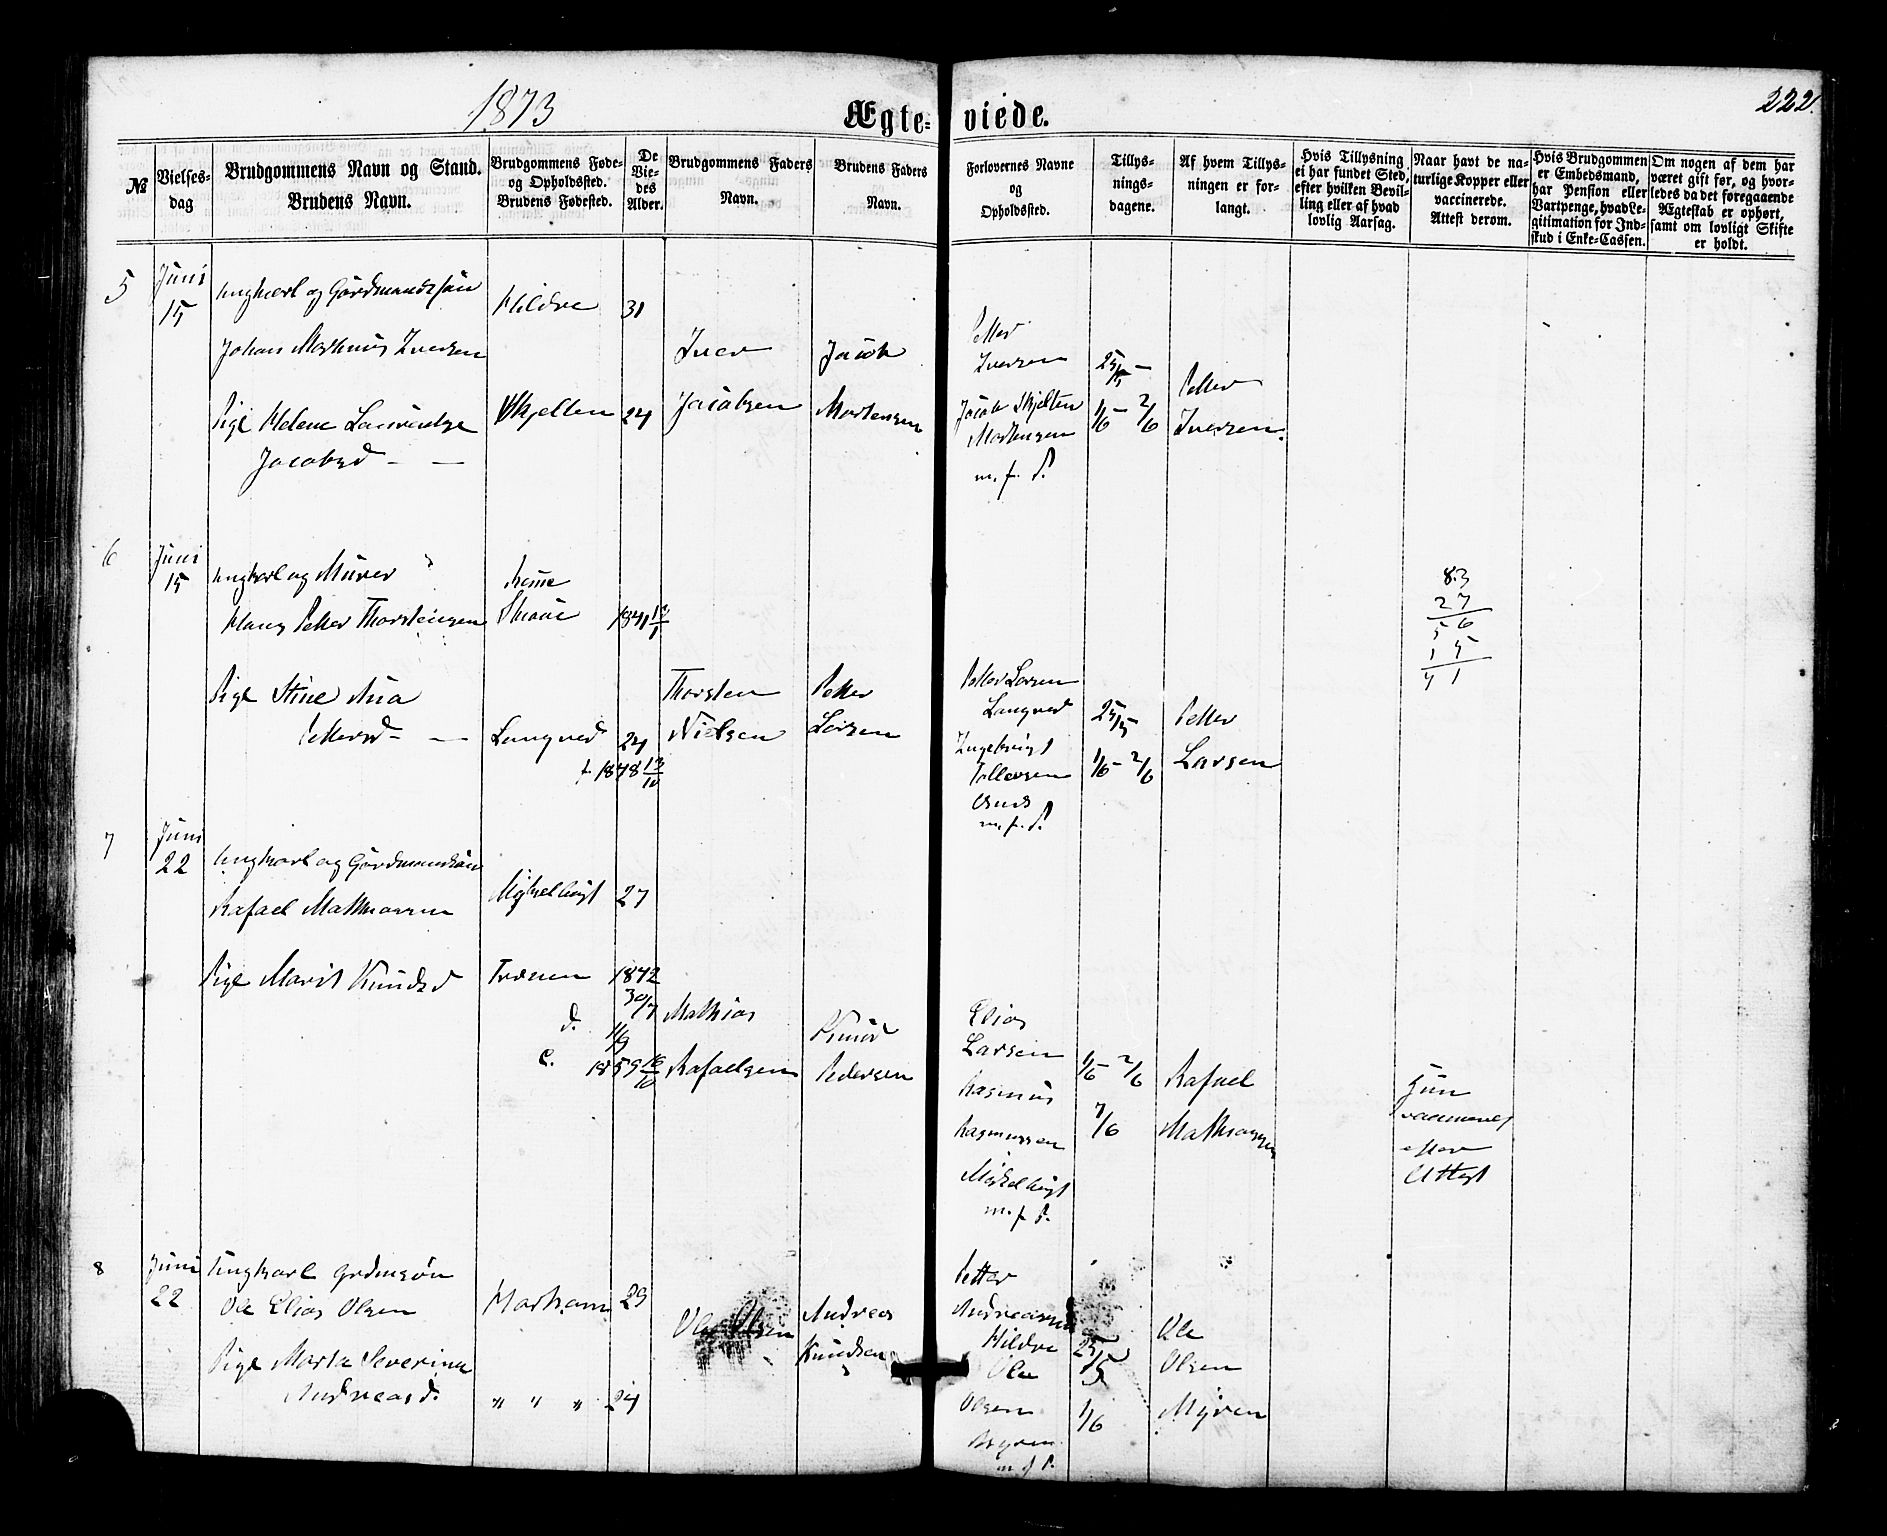 1873
Ægte-
viede.
222.
№
Vielses-
dag
Brudgommens Navn og Stand.
Brudens Navn.
Brudgommens Føde-
og Opholdssted.
Brudens Fødested.
De
Vie-
des
Alder.
Brudgommens Faders
Navn.
Brudens Faders
Navn.
Forlovernes Navne
og
Opholdssted.
Tillys-
nings-
dagene.
Af hvem Tillys-
ningen er for-
langt.
Hvis Tillysning
ei har fundet Sted,
efter hvilken Bevil-
ling eller af hvad
lovlig Aarsag.
Naar havt de na-
turlige Kopper eller
vaccinerede.
Attest derom.
Hvis Brudgommen
er Embedsmand,
har Pension eller
Vartpenge, hvad Le-
gitimation for Ind-
skud i Enke-Cassen.
Om nogen af dem har
været gift før, og hvor-
ledes da det foregaaende
Ægteskab er ophørt,
samt om lovligt Skifte
er holdt.
5
Juni
15
Ungkarl og Gårdmandssön
Johan Mathius Iversen
Pige Helene Laurentze
Jacobsd
Hildre
31
Skjelten
24
Iver
Jacobsen
Jacob
Mortensen
Petter
Iversen
Jacob Skjelten
Mortensen
m. f. P.
25/5 -
1/6 - 2/6
Petter
Iversen.
6
Juni
15
Ungkarl og Murer
Hans Petter Thorstensen
Pige Stine Ana
Pettersd
1841 12/1
Langved
24
+ 1878 13/10
Thorsten
Nielsen
Petter
Larsen
Petter Larsen
Langved
Ingebrigt
Tollevsen
m. f. P.
25/5
1/6 - 2/6
Petter
Larsen
83
27
56
15
41
7
Juni
22
Ungkarl og Gårdmandsön
Rafael Mathiassen
Pige Marit Knudsd
27
1872
30/7
d. 11/9
C. 1859 16/10
Mathias
Rafaelsen
Knud
Pedersen
Elias
Larsen
Rasmus
Rasmussen
m. f. P.
1/6 - 2/6
7/6
Rafael
Mathiassen
vaccineret
efter
Attest
8
Juni
22
Ungkarl Grdmsön
Ole Elias Olsen
Pige Marta Severine
Andreasd.
Harham
29
" " "
24
Ole Olsen
Andreas
Knudsen
Petter
Andreassen
Hildre
Ole
Olsen
Myren
m. f. P.
25/5
1/6
Ole
Olsen
Myren